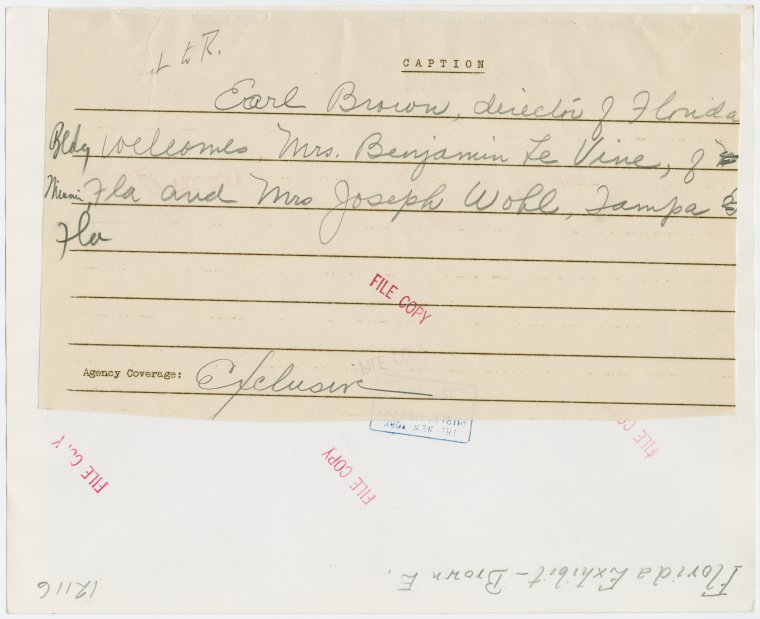 L to R.
CAPTION
Earl Brown, director of Florida
Bldg welcomes Mrs. Benjamin Le Vine, of
Miami, Fla and Mrs Joseph Wohl, Tampa
Fla
FILE COPY
FILE COPY
Agency Coverage: Exclusive
THE NEW YORK
PUBLIC LIBRARY
FILE CO
FILE COPY
FILE COPY
Florida Exhibit - Brown E.
12116